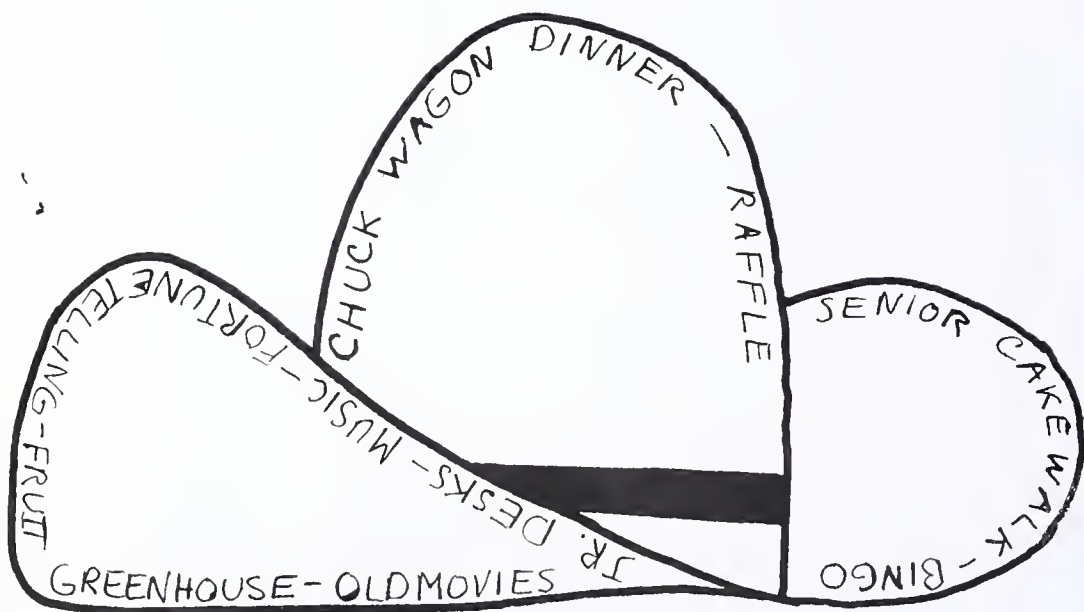 CHUCK WAGON DINNER — RAFFLE
SENIOR CAKEWALK - BINGO
JR. DESKS - MUSIC - FORTUNETELLING - FRUIT
GREENHOUSE - OLD MOVIES